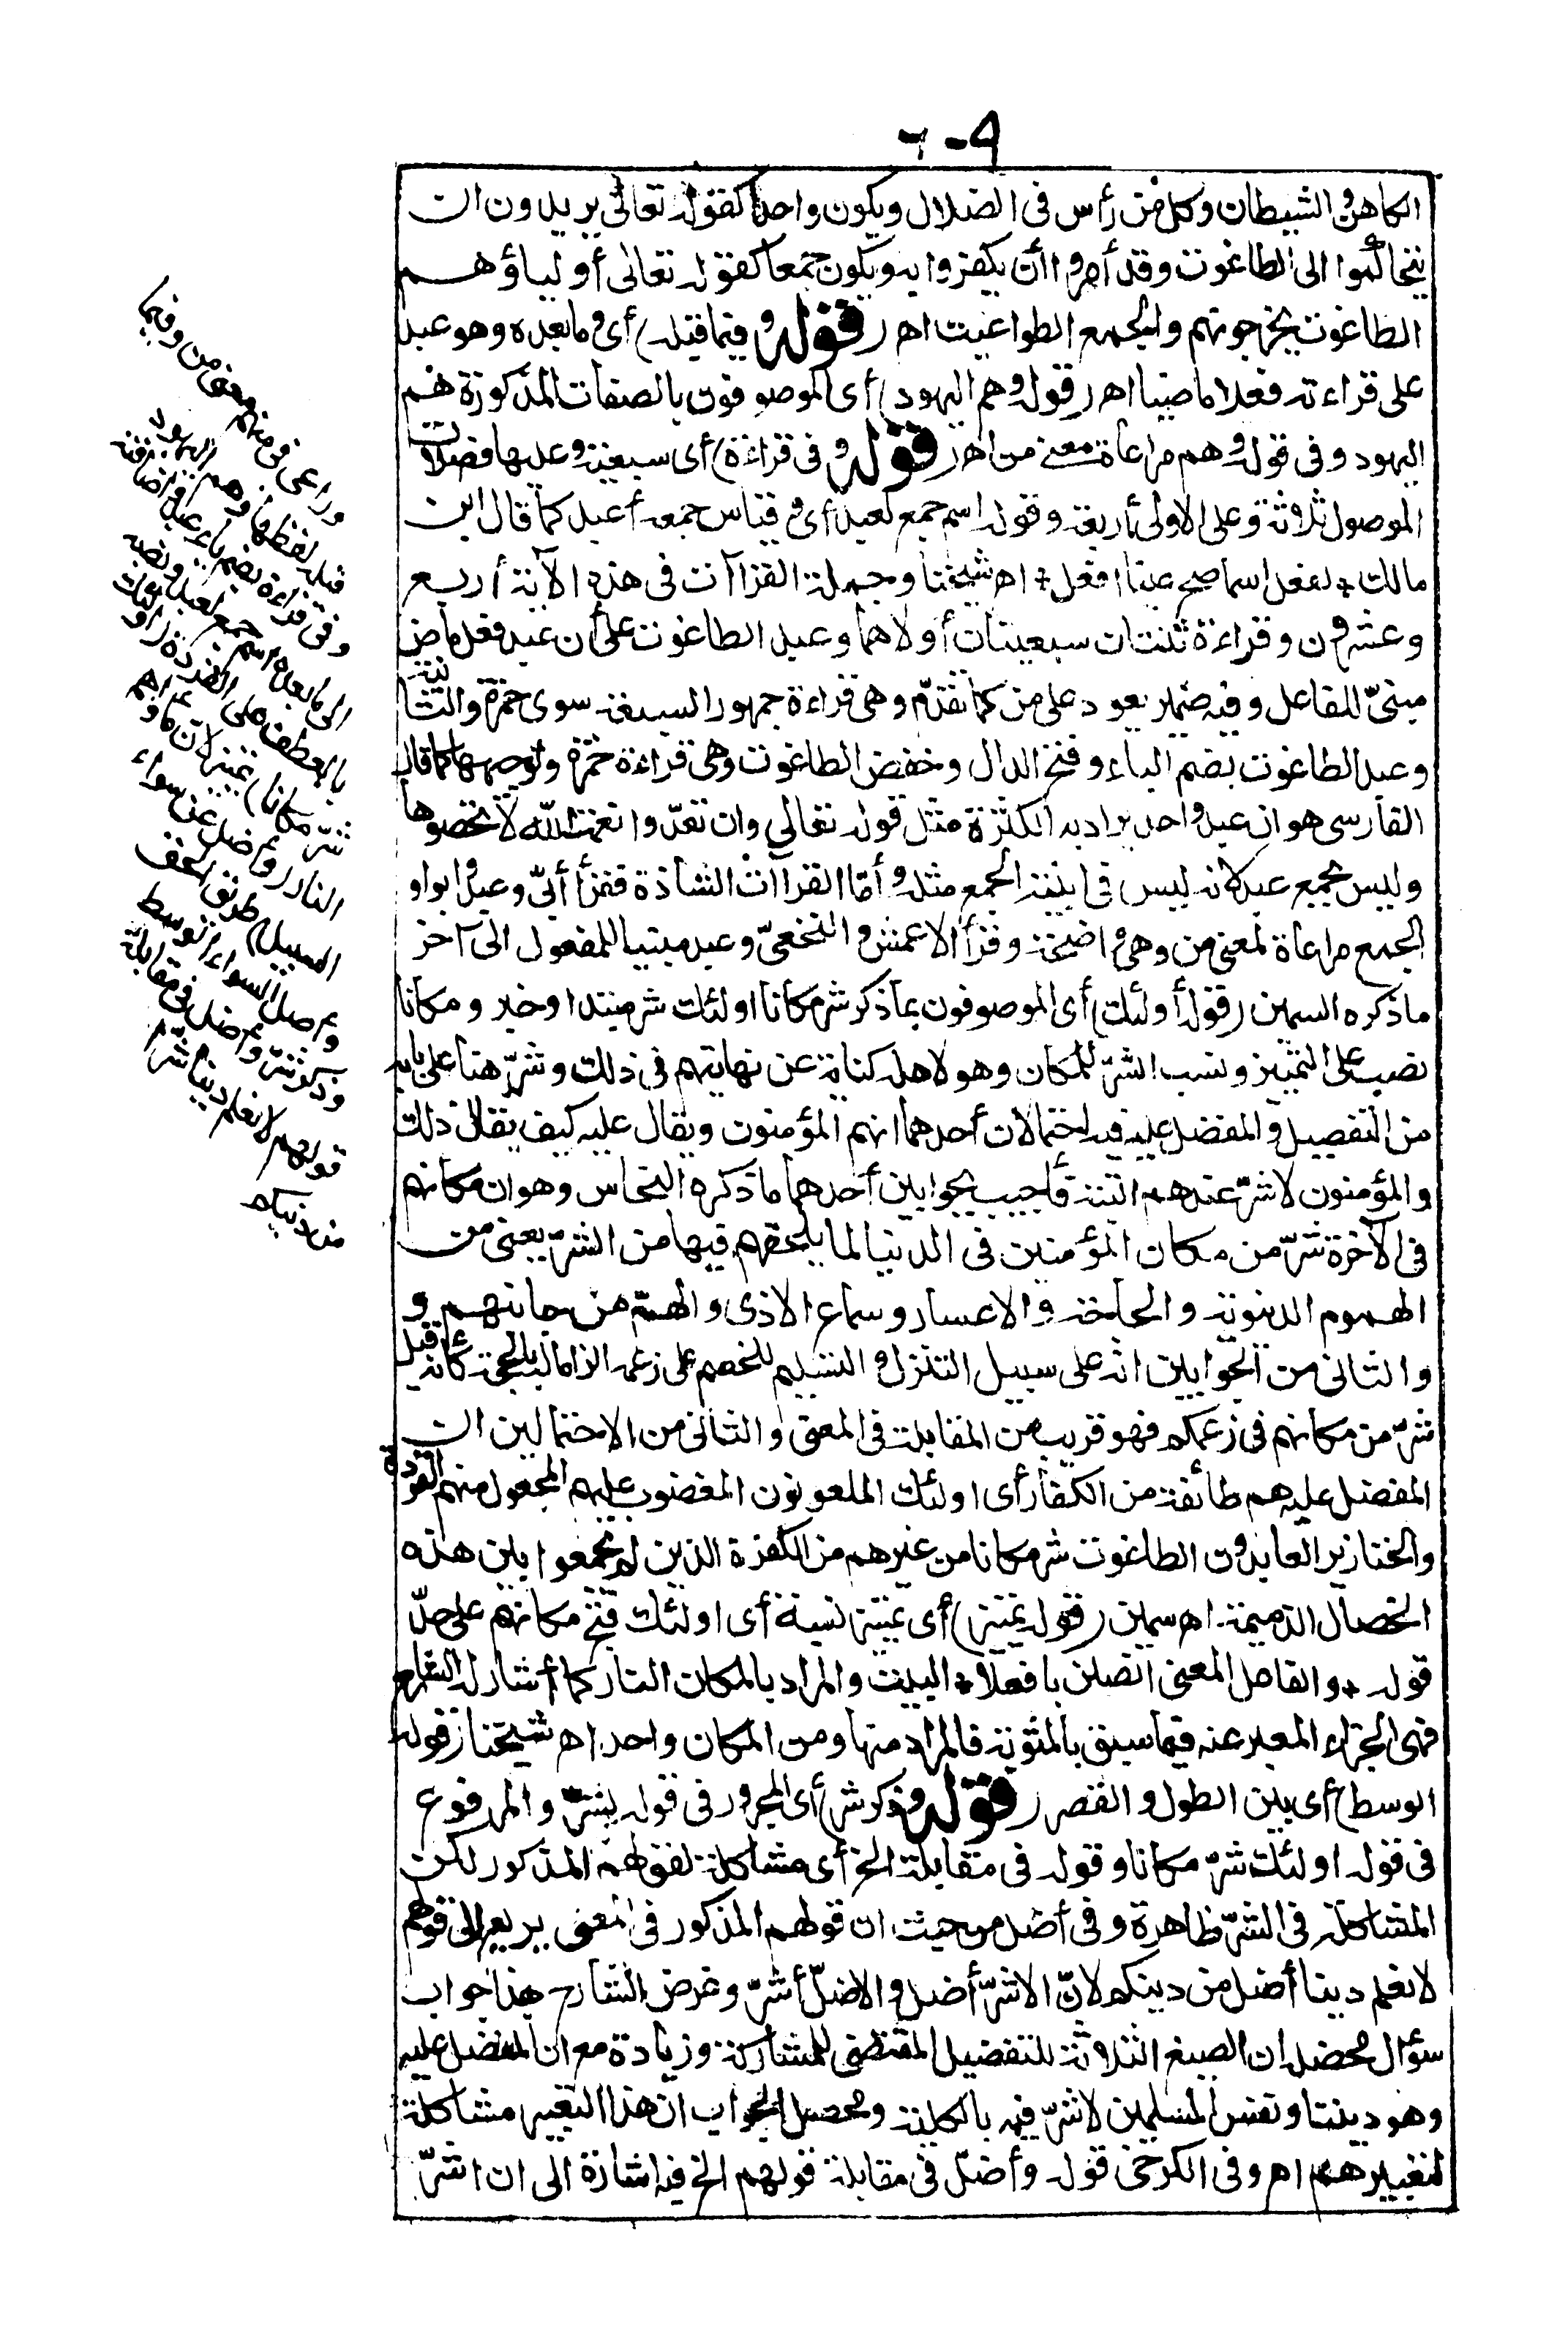 ٦٠٩
الكاهن والشيطان وكل من رأس فى الضلال ويكون واحدا كقوله تعالى يريدون ان
يتحاكموا الى الطاغوت وقد أمروا أن يكفروا به ويكون جمعا كقوله تعالى أولياؤهم
الطاغوت يخرجونهم والجمع الطواغيت اهـ (قوله وفيما قبله) أى وما بعده وهو عبد
على قراءته فعلا ماضيا اهـ (قوله وهم اليهود) أى الموصوفون بالصفات المذكورة هم
اليهود وفى قوله وهم مراعاة معنى من اهـ (قوله وفى قراءة) أى سبعية وعليها فصلات
الموصول ثلاثة وعلى الاولى أربعة وقوله اسم جمع لعبد أى وقياس جمعه أعبد كما قال ابن
مالك * لفعل اسما صح عينا افعل * اهـ شيخنا وجملة القراآت فى هذه الآية أربع
وعشرون وقراءة ثنتان سبعيتان أولاهما وعبد الطاغوت على أن عبد فعل ماض
مبنىّ للفاعل وفيه ضمير يعود على من كما تقدّم وهى قراءة جمهور السبعة سوى حمزة والثانية
وعبد الطاغوت بضم الباء وفتح الدال وخفض الطاغوت وهى قراءة حمزة وتوجيهها كما قال
الفارسى هو ان عبد واحد يراد به الكثرة مثل قوله تعالى وان تعدّوا نعمت الله لا تحصوها
وليس بجمع عبد لانه ليس فى ابنية الجمع مثله وأمّا القراآت الشاذة فقرأ أبىّ وعبدوا بواو
الجمع مراعاة لمعنى من وهى واضحة وقرأ الاعمش والنخعىّ وعبد مبنيا للمفعول الى آخر
ما ذكره السمين (قوله أولئك) أى الموصوفون بما ذكر شر مكانا اولئك شر مبتدا وخبر ومكانا
نصب على التمييز ونسب الشرّ للمكان وهو لاهله كناية عن نهايتهم فى ذلك وشرّ هنا على بابه
من التفضيل والمفضل عليه فيه احتمالات أحدهما انهم المؤمنون ويقال عليه كيف يقال ذلك
والمؤمنون لا شرّ عندهم البتة فأجيب بجوابين أحدهما ما ذكره النحاس وهو ان مكانهم
فى الآخرة شرّ من مكان المؤمنين فى الدنيا لما يلحقهم فيها من الشرّ يعنى من
الهموم الدنيوية والحاجة والاعسار وسماع الاذى والهمّ من جانبهم و
والثانى من الجوابين انه على سبيل التنزل والتسليم للخصم على زعمه الزاما له بالحجة كأنه قيل
شرّ من مكانهم فى زعمكم فهو قريب من المقابلة فى المعنى والثانى من الاحتمالين ان
المفضل عليهم طائفة من الكفار أى اولئك الملعونون المغضوب عليهم المجعول منهم القردة
والخنازير العابدون الطاغوت شر مكانا من غيرهم من الكفرة الذين لم يجمعوا بين هذه
الخصال الذميمة اهـ سمين (قوله تمييز) أى تمييز نسبة أى اولئك قبح مكانهم على حدّ
قوله * والفاعل المعنى انصبن بافعلا * البيت والمراد بالمكان النار كما أشار له الشارح
فهى الجزاء المعبر عنه فيما سبق بالمثوبة فالمراد منها ومن المكان واحد اهـ شيخنا (قوله
الوسط) أى بين الطول والقصر (قوله وذكر شر) أى المجرور فى قوله بشرّ والمرفوع
فى قوله اولئك شرّ مكانا وقوله فى مقابلة الخ أى مشاكلة لقولهم المذكور لكن
المشاكلة فى الشرّ ظاهرة وفى أضل من حيث ان قولهم المذكور فى المعنى يرجع الى قولهم
لا نعلم دينا أضل من دينكم لانّ الاشرّ أضل والاضلّ أشرّ وغرض الشارح بهذا جواب
سؤال محصله ان الصيغ الثلاثة للتفضيل المقتضى للمشاركة وزيادة مع ان المفضل عليه
وهو ديننا ونفس المسلمين لا شرّ فيه بالكلية ومحصل الجواب ان هذا التعبير مشاكلة
لتعبيرهم اهـ وفى الكرخى قوله وأضلّ فى مقابلة قولهم الخ فيه اشارة الى ان اشرّ
وراعى فى منهم معنى من وفيما
قبله لفظها وهم اليهود
وفى قراءة بضم باء عبد واضافته
الى ما بعده اسم جمع لعبد ونصبه
بالعطف على القردة (اولئك
شرّ مكانا) تمييز لان مأواهم
النار (وأضل عن سواء
السبيل) طريق الحق
وأصل السواء الوسط
وذكر شرّ وأضل فى مقابلة
قولهم لا نعلم دينا شرّا
من دينكم